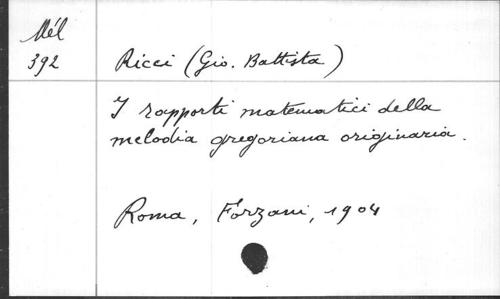 Mél
392
Ricci (Gio. Battista)
I rapporti matematici della
melodia gregoriana originaria.
Roma, Forzani, 1904